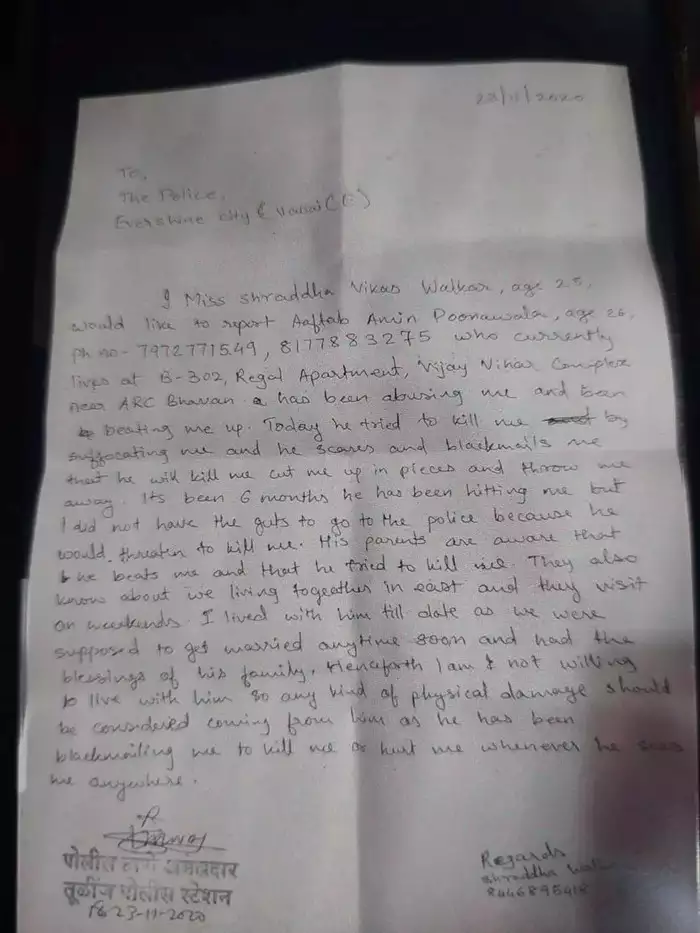 23/11/2020
To,
The Police,
Evershine city & Vasai (E)
I Miss Shraddha Vikas Walkar, age 25,
would like to report Aaftab Amin Poonawala, age 26,
ph no- 7972771549, 8177883275 who currently
lives at B-302, Regal Apartment, Vijay Vihar Complex
near ARC Bhavan has been abusing me and been
beating me up. Today he tried to kill me by
suffocating me and he scares and blackmails me
that he will kill me cut me up in pieces and throw me
away. Its been 6 months he has been hitting me but
I did not have the guts to go to the police because he
would threaten to kill me. His parents are aware that
he beats me and that he tried to kill me. They also
know about we living togeather in east and they visit
on weekends. I lived with him till date as we were
supposed to get married anytime soon and had the
blessings of his family. Henceforth I am not willing
to live with him so any kind of physical damage should
be considered coming from him as he has been
blackmailing me to kill me or hurt me whenever he sees
me anywhere.
पोलीस ठाणे अंमलदार
तूळींज पोलीस स्टेशन
23-11-2020
Regards
Shraddha
8446895418